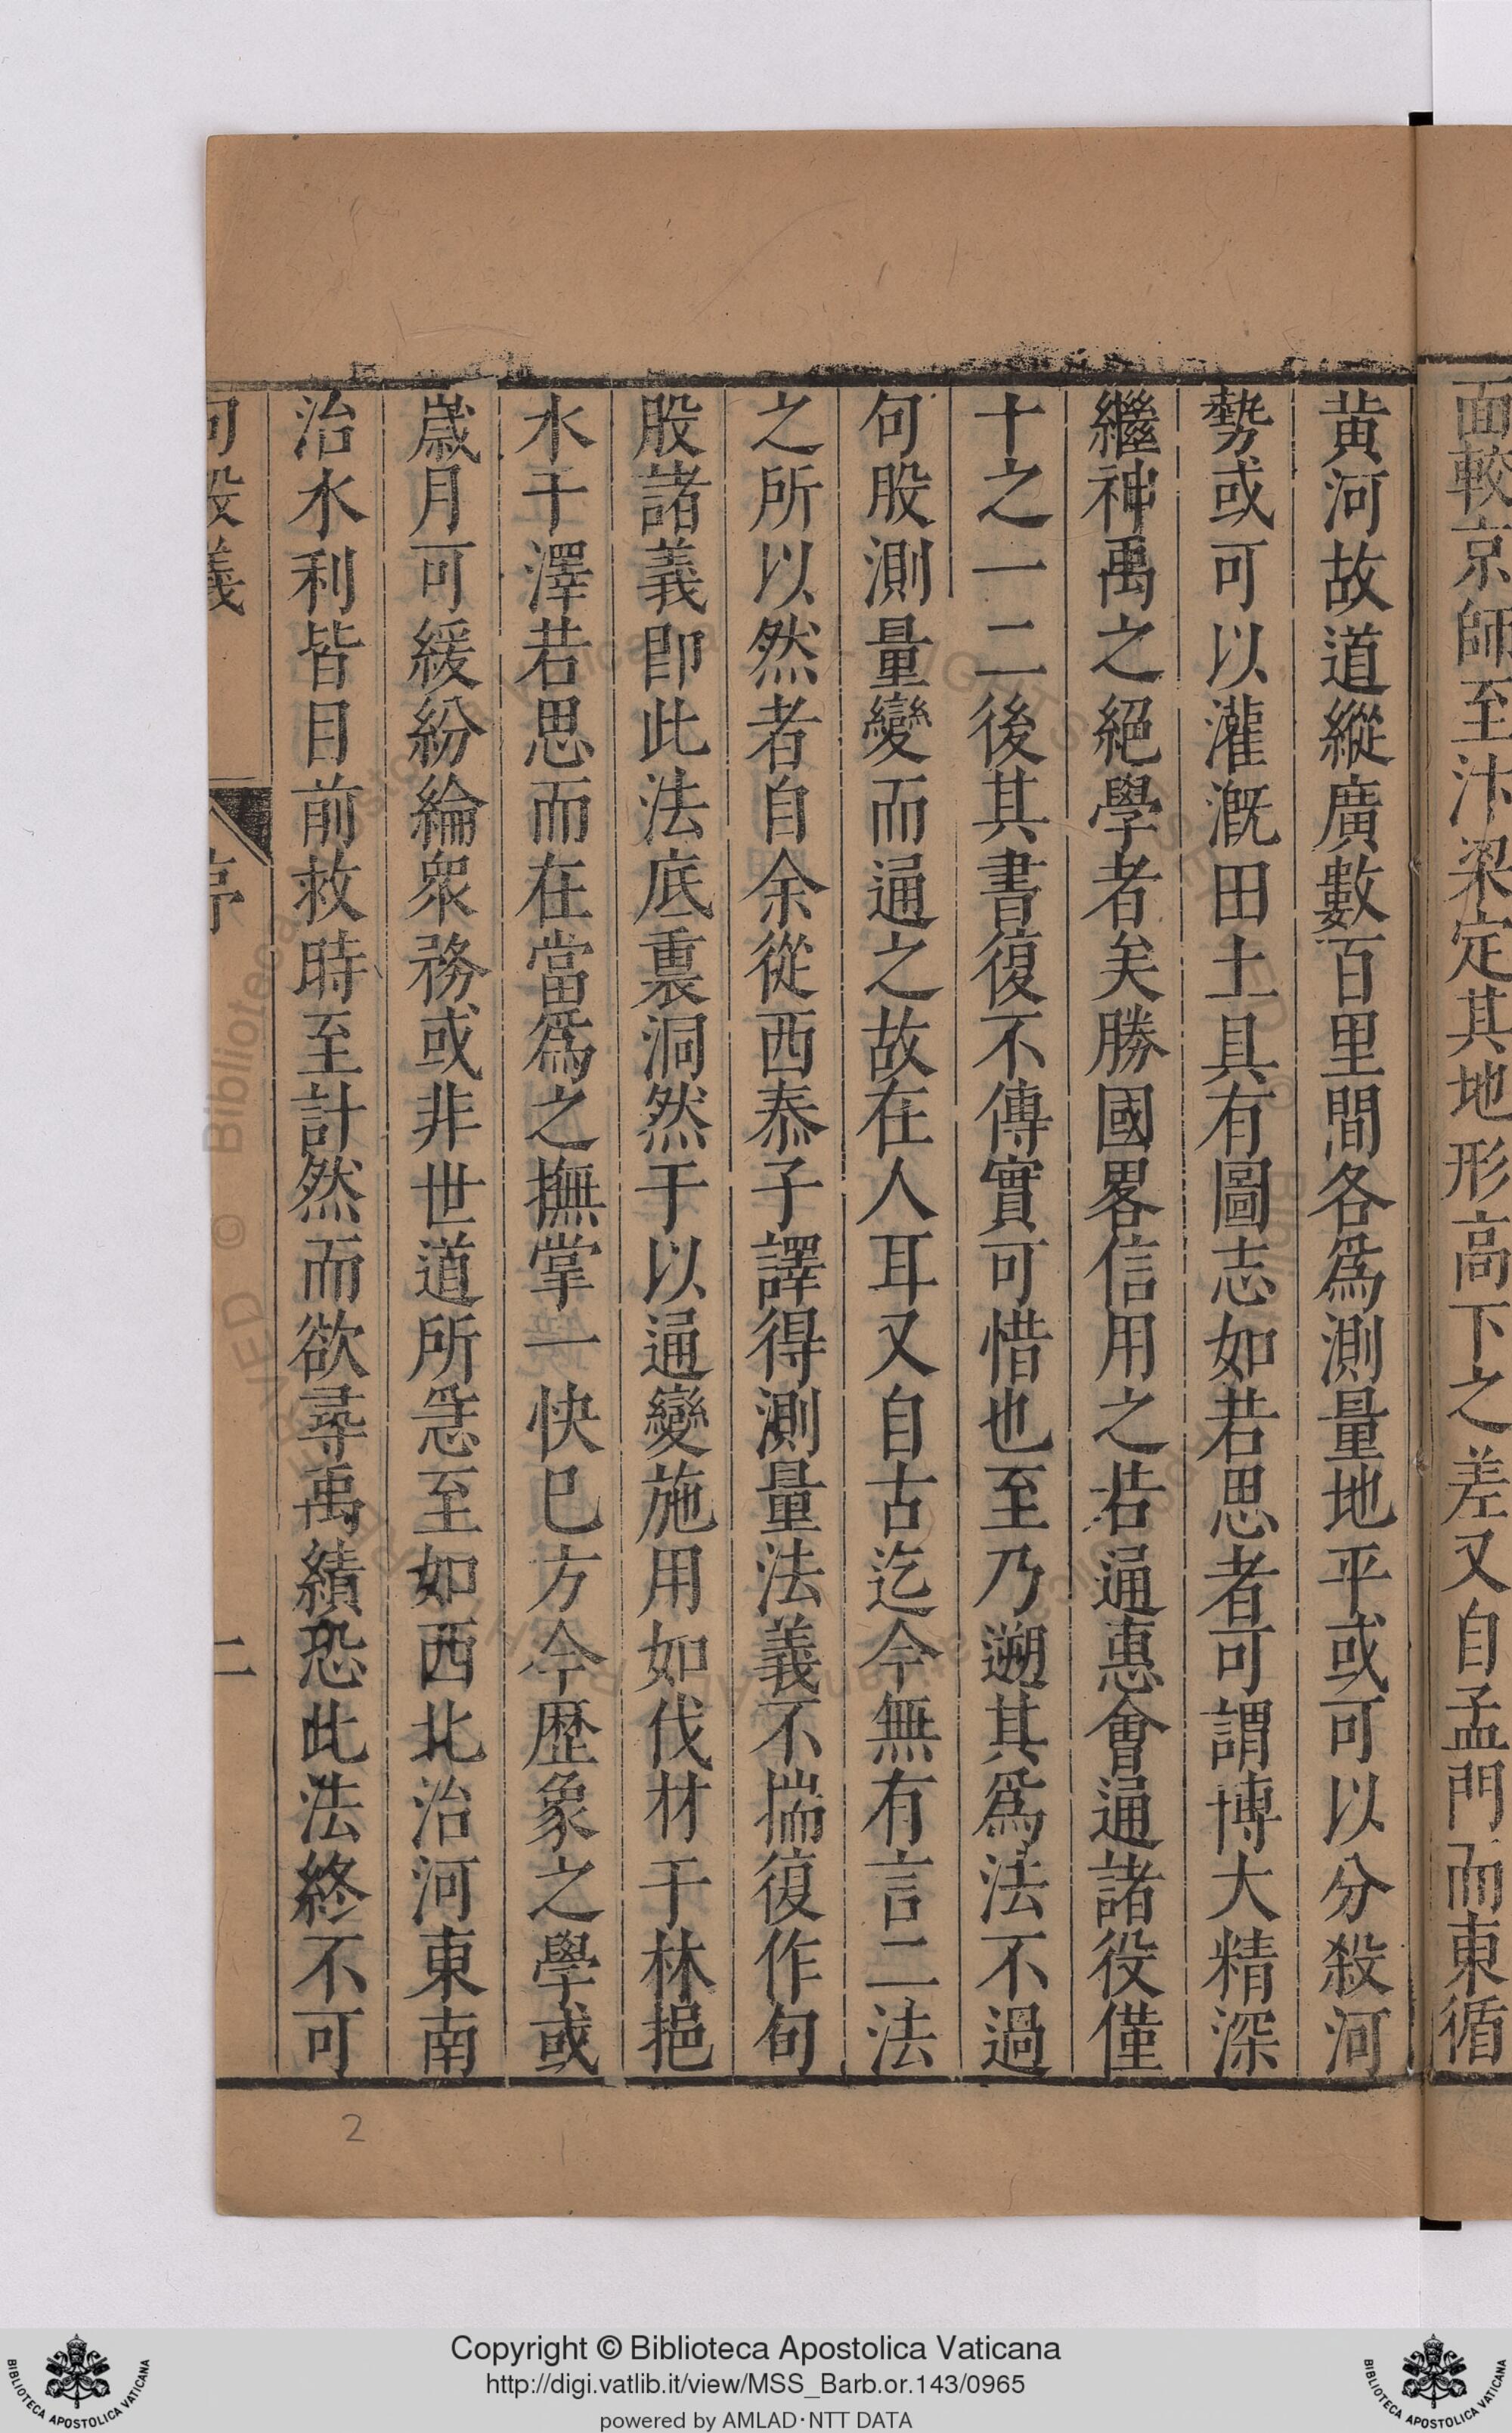 面較京師至汴梁定其地形高下之差又自孟門而東循
黄河故道縱廣數百里間各爲測量地平或可以分殺河
勢或可以灌漑田土具有圖志如若思者可謂博大精深
繼神禹之絕學者矣勝國畧信用之若通惠會通諸役僅
十之一二後其書復不傳實可惜也至乃遡其爲法不過
句股測量變而通之故在人耳又自古迄今無有言二法
之所以然者自余從西泰子譯得測量法義不揣復作句
股諸義即此法底裏洞然于以通變施用如伐材于林挹
水于澤若思而在當爲之撫掌一快巳方今歷象之學或
歲月可緩紛綸衆務或非世道所急至如西北治河東南
治水利皆目前救時至計然而欲尋禹績恐此法終不可
句股義
序
二
2
Copyright © Biblioteca Apostolica Vaticana
http://digi.vatlib.it/view/MSS_Barb.or.143/0965
powered by AMLAD·NTT DATA
BIBLIOTECA APOSTOLICA VATICANA
BIBLIOTECA APOSTOLICA VATICANA